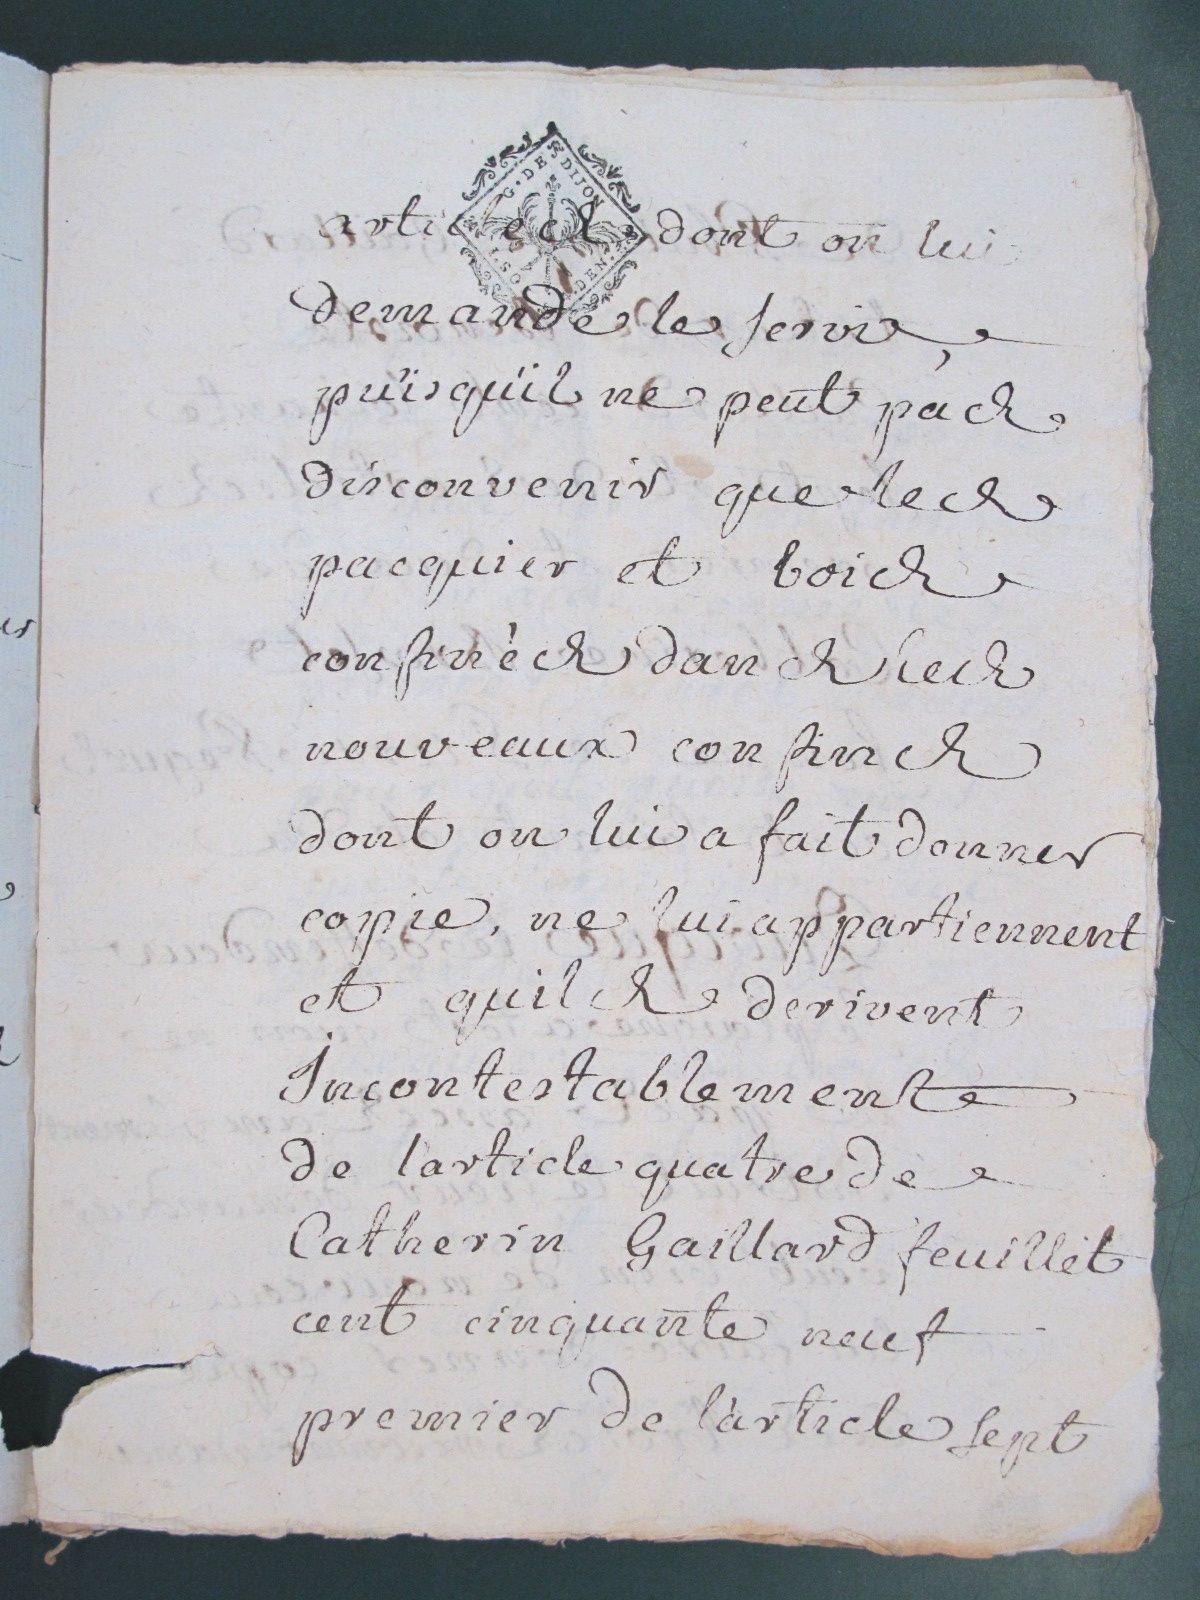 G. DE DIJON
SO. DEN.
articles dont on lui
demande le servie,
puisquil ne peut pas
disconvenir que les
pacquier et bois
confinés dans les
nouveaux confins
dont on lui a fait donner
copie, ne lui appartiennent
et quils derivent
Incontestablement
de larticle quatre de
Catherin Gaillard feuillet
cent cinquante neuf
premier de l'article sept